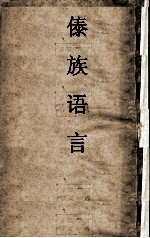 傣族语言